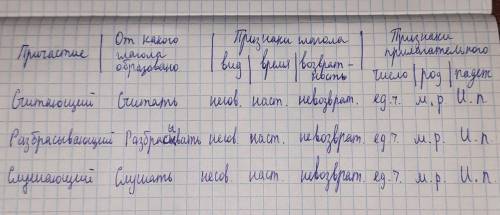 Причастие | От какого глагола образовано | Признаки глагола | Признаки прилагательного
вид | время | возврат-ность | число | род | падеж
Считающий Считать несов. наст. невозврат. ед.ч. м.р. И.п.
Разбрасывающий Разбрасывать несов. наст. невозврат. ед.ч. м.р. И.п.
Слушающий Слушать несов. наст. невозврат. ед.ч. м.р. И.п.